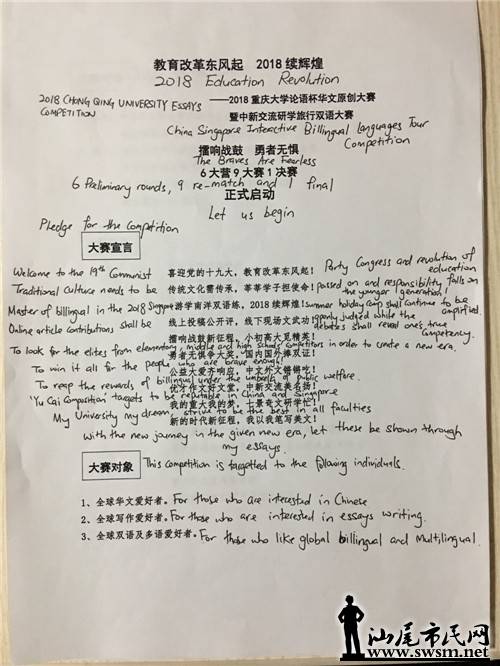 教育改革东风起 2018 续辉煌
2018 Education Revolution
2018 CHONG QING UNIVERSITY ESSAYS COMPETITION
——2018 重庆大学论语杯华文原创大赛
暨中新交流研学旅行双语大赛
China Singapore Interactive Billingual Languages Tour Competition
擂响战鼓 勇者无惧
The Braves Are Fearless
6 大营 9 大赛 1 决赛
6 Preliminary rounds, 9 re-match and 1 final
正式启动
Let us begin
Pledge for the competition
大赛宣言
Welcome to the 19th Communist Party Congress and revolution of education
喜迎党的十九大，教育改革东风起！
Traditional culture needs to be passed on and responsibility falls on the younger generation!
传统文化需传承，莘莘学子担使命！
Master of billingual in the 2018 Singapore summer holiday camp shall continue to be amplified.
游学南洋双语练，2018 续辉煌！
Online article contributions shall be openly judged while the debates shall reveal one's true competency.
线上投稿公开评，线下现场文武功！
擂响战鼓新征程，小初高大见精英！
To look for the elites from elementary, middle and high school competitions in order to create a new era.
勇者无惧争大奖，国内国外捧双证！
To win it all for the people who are brave enough!
公益大爱齐响应，中文外文错锵吃！
To reap the rewards of billingual under the umbrella of public welfare.
优秀作文好文堂，中新交流美名扬！
'Yu Cai Composition' targets to be reputable in China and Singapore
我的重大我的梦，七景奇文研学忙！
My University my dream, strive to be the best in all faculties
新的时代新征程，我以我笔写美文！
With the new journey in the given new era, let these be shown through my essays.
大赛对象
This competition is targetted to the following individuals.
1、全球华文爱好者。For those who are interested in Chinese
2、全球写作爱好者。For those who are interested in essays writing.
3、全球双语及多语爱好者。For those who like global billingual and Multilingual.
汕尾市民网
www.swsm.net